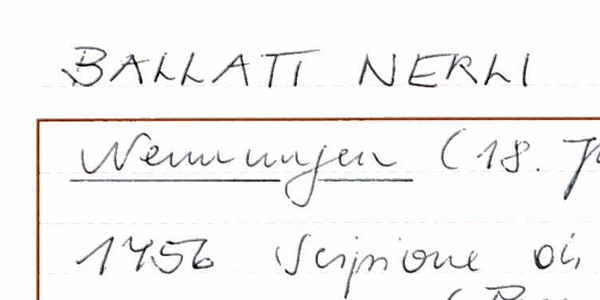 BALLATI NERLI
Nennungen (18. J
1756 Scipione di